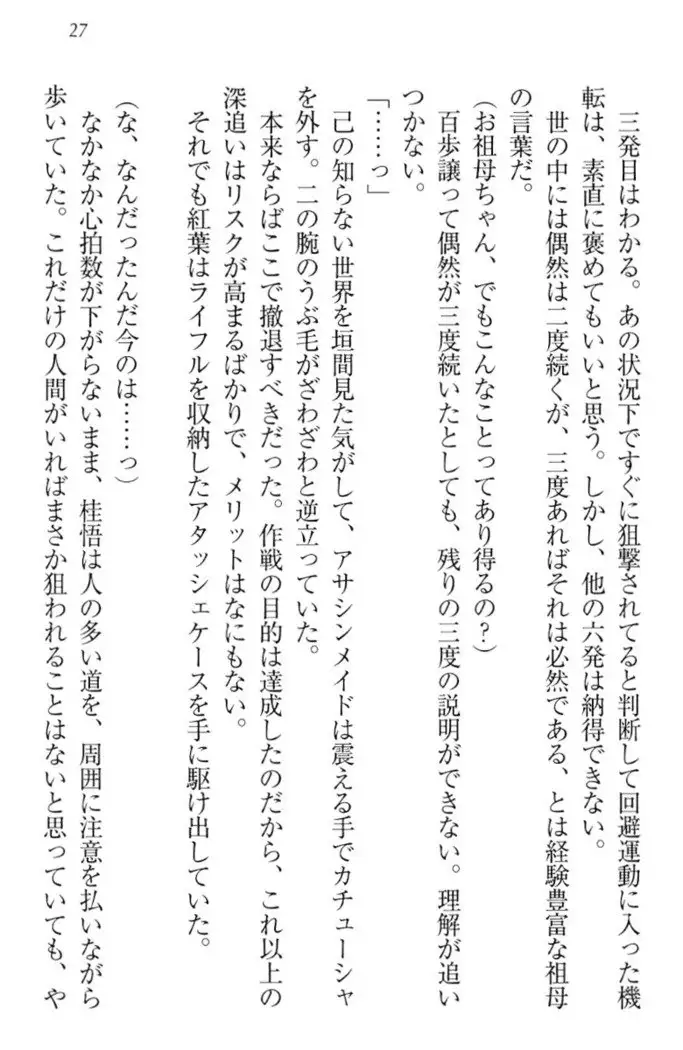 27
　三発目はわかる。あの状況下ですぐに狙撃されてると判断して回避運動に入った機
転は、素直に褒めてもいいと思う。しかし、他の六発は納得できない。
　世の中には偶然は二度続くが、三度あればそれは必然である、とは経験豊富な祖母
の言葉だ。
（お祖母ちゃん、でもこんなことってあり得るの？）
　百歩譲って偶然が三度続いたとしても、残りの三度の説明ができない。理解が追い
つかない。
「……っ」
　己の知らない世界を垣間見た気がして、アサシンメイドは震える手でカチューシャ
を外す。二の腕のうぶ毛がざわざわと逆立っていた。
　本来ならばここで撤退すべきだった。作戦の目的は達成したのだから、これ以上の
深追いはリスクが高まるばかりで、メリットはなにもない。
　それでも紅葉はライフルを収納したアタッシェケースを手に駆け出していた。
（な、なんだったんだ今のは……っ）
　なかなか心拍数が下がらないまま、桂悟は人の多い道を、周囲に注意を払いながら
歩いていた。これだけの人間がいればまさか狙われることはないと思っていても、や